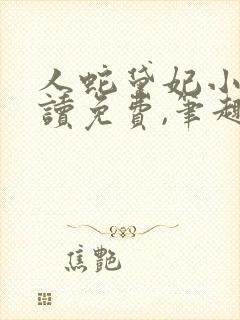 人蛇黛妃小
讀免費,筆趣
焦艷